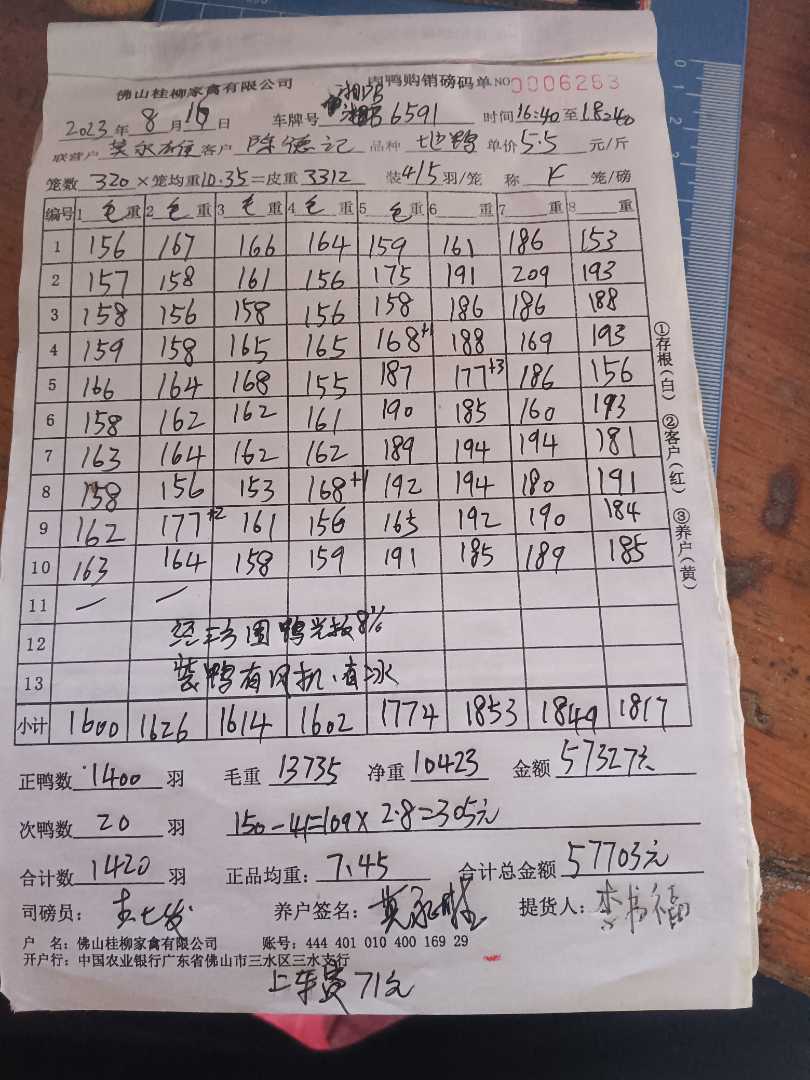 佛山桂柳家禽有限公司 肉鸭购销磅码单 NO 0006263
2023年8月16日 车牌号 6591 时间16:40至18:20
联营户 莫永雄 客户 陈德记 品种 单价5.5元/斤
笼数 320 ×笼均重10.35=皮重 3312 装4/5羽/笼 称 K 笼/磅
编号 1毛重 2毛重 3毛重 4毛重 5毛重 6重 7重 8重
1 156 167 166 164 159 161 186 153
2 157 158 161 156 175 191 209 193
3 158 156 158 156 158 186 186 188
4 159 158 165 165 168+1 188 169 193
5 166 164 168 155 187 177+3 186 156
6 158 162 162 161 190 185 160 193
7 163 164 162 162 189 194 194 181
8 158 156 153 168+1 192 194 180 191
9 162 177+2 161 156 165 192 190 184
10 163 164 158 159 191 185 189 185
11 — —
12 鸭 8%
13 装鸭有风机、有冰
小计 1600 1626 1614 1602 1774 1853 1849 1817
正鸭数 1400 羽 毛重 13735 净重 10423 金额 57327元
次鸭数 20 羽 150-41=109×2.8=305元
合计数 1420 羽 正品均重: 7.45 合计总金额 57703元
司磅员: 养户签名: 莫永雄 提货人: 李书福
户 名: 佛山桂柳家禽有限公司 账号: 444 401 010 400 169 29
开户行: 中国农业银行广东省佛山市三水区三水支行
上车费 71元
①存根(白) ②客户(红) ③养户(黄)